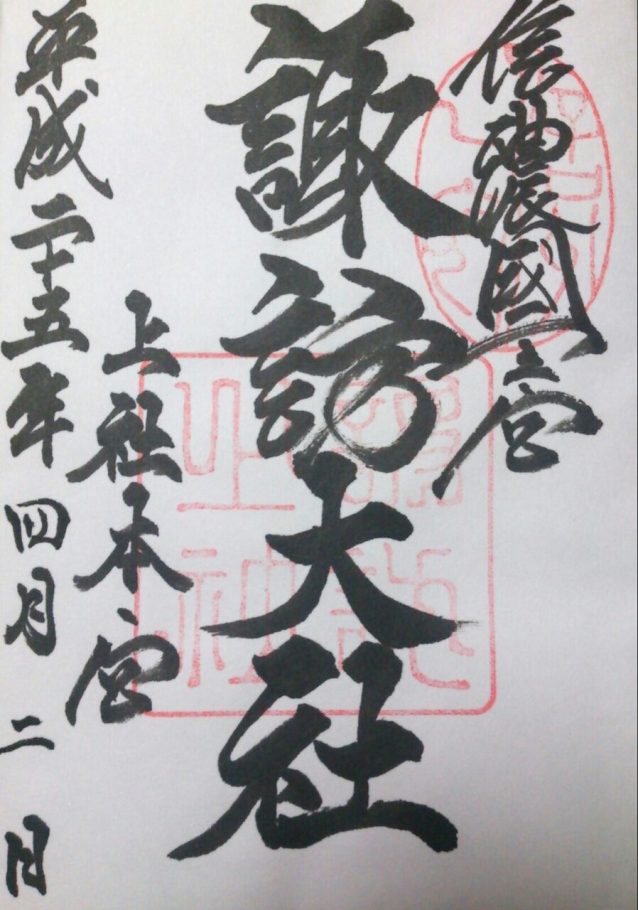 信濃國一之宮
諏訪大社
上社本宮
平成二十五年四月二日